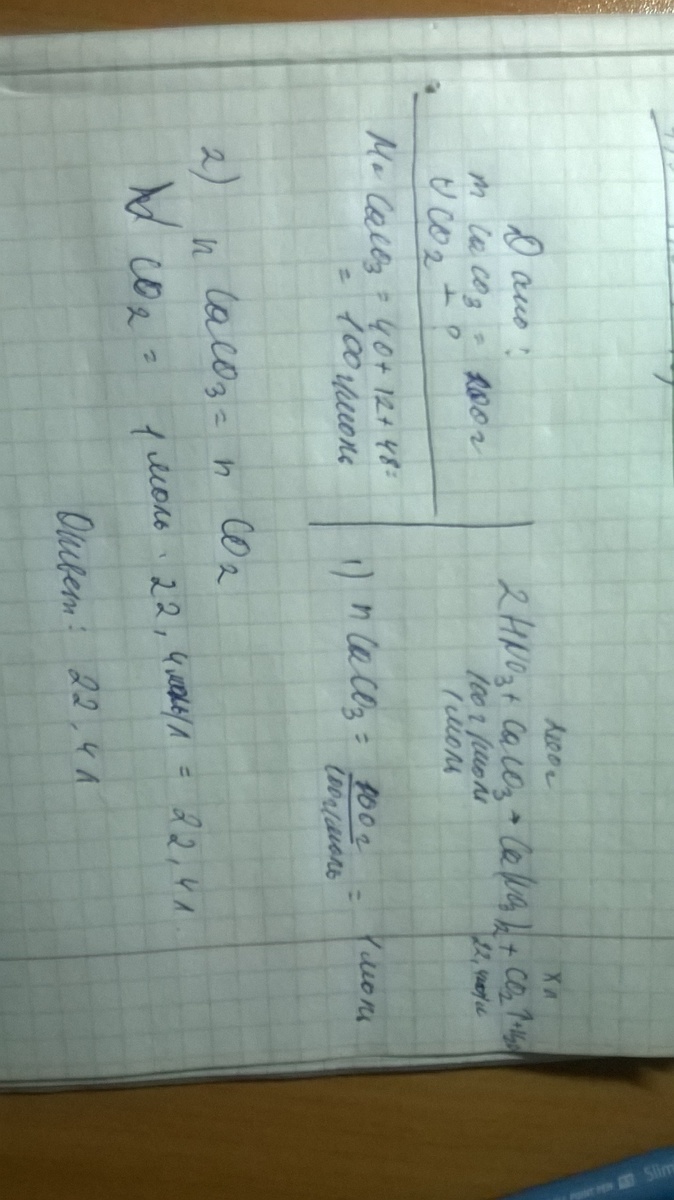 Дано:
m CaCO3 = 100г
V CO2 - ?
Mr CaCO3 = 40 + 12 + 48 =
= 100 г/моль
100г
X л
2HNO3 + CaCO3 → Ca(NO3)2 + CO2↑ + H2O
100 г/моль
1 моль
1) n CaCO3 = 100г / 100г/моль = 1 моль
2) n CaCO3 = n CO2
V CO2 = 1 моль · 22,4 моль/л = 22,4 л
Ответ: 22,4 л
Slim